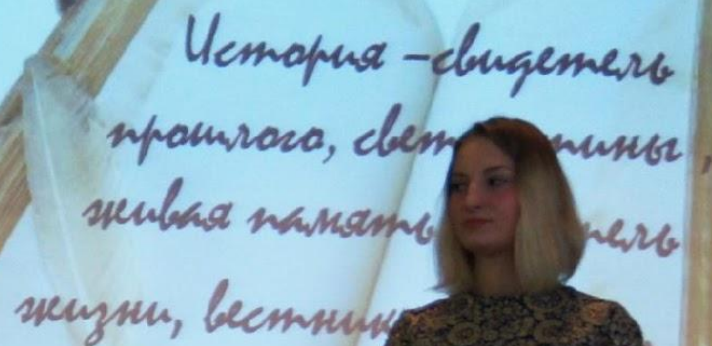 История –свидетель
прошлого,
живая память
жизни, вестник